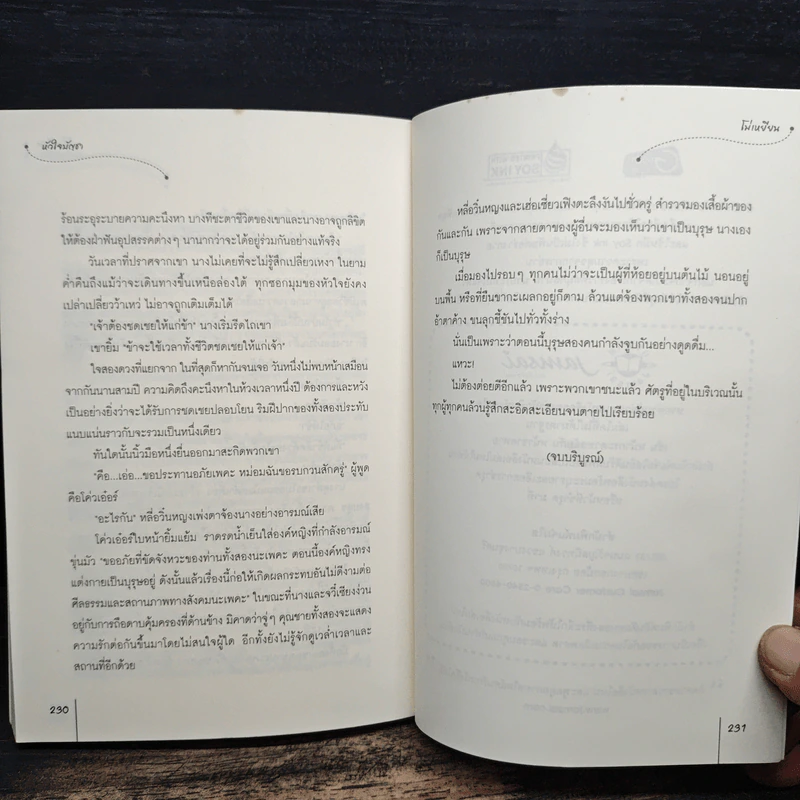 หัวใจมัจฉา
ร้อนระอุระบายความคะนึงหา บางทีชะตาชีวิตของเขาและนางอาจถูกลิขิต
ให้ต้องฝ่าฟันอุปสรรคต่างๆ นานากว่าจะได้อยู่ร่วมกันอย่างแท้จริง
วันเวลาที่ปราศจากเขา นางไม่เคยที่จะไม่รู้สึกเปลี่ยวเหงา ในยาม
ค่ำคืนถึงแม้ว่าจะเดินทางขึ้นเหนือล่องใต้ ทุกซอกมุมของหัวใจยังคง
เปล่าเปลี่ยวว้าเหว่ ไม่อาจถูกเติมเต็มได้
"เจ้าต้องชดเชยให้แก่ข้า" นางเริ่มรีดไถเขา
เขายิ้ม "ข้าจะใช้เวลาทั้งชีวิตชดเชยให้แก่เจ้า"
ใจสองดวงที่แยกจาก ในที่สุดก็หากันจนเจอ วันหนึ่งไม่พบหน้าเสมือน
จากกันนานสามปี ความคิดถึงคะนึงหาในห้วงเวลาหนึ่งปี ต้องการและหวัง
เป็นอย่างยิ่งว่าจะได้รับการชดเชยปลอบโยน ริมฝีปากของทั้งสองประทับ
แนบแน่นราวกับจะรวมเป็นหนึ่งเดียว
ทันใดนั้นนิ้วมือหนึ่งยื่นออกมาสะกิดพวกเขา
"คือ...เอ่อ...ขอประทานอภัยเพคะ หม่อมฉันขอรบกวนสักครู่" ผู้พูด
คือโค่วเอ๋อร์
"อะไรกัน" หลี่อวิ๋นหญงเพ่งตาจ้องนางอย่างอารมณ์เสีย
โค่วเอ๋อร์ใบหน้ายิ้มแย้ม ราดรดน้ำเย็นใส่องค์หญิงที่กำลังอารมณ์
ขุ่นมัว "ขออภัยที่ขัดจังหวะของท่านทั้งสองนะเพคะ ตอนนี้องค์หญิงทรง
แต่งกายเป็นบุรุษอยู่ ดังนั้นแล้วเรื่องนี้ก่อให้เกิดผลกระทบอันไม่ดีงามต่อ
ศีลธรรมและสถานภาพทางสังคมนะเพคะ" ในขณะที่นางและจวี๋เซียงง่วน
อยู่กับการถือดาบคุ้มครองที่ด้านข้าง มิคาดว่าจู่ๆ คุณชายทั้งสองจะแสดง
ความรักต่อกันขึ้นมาโดยไม่สนใจผู้ใด อีกทั้งยังไม่รู้จักดูเวล่ำเวลาและ
สถานที่อีกด้วย
230
โม่เหยียน
หลี่อวิ๋นหญงและเฮ่อเซี่ยวเฟิงตะลึงงันไปชั่วครู่ สำรวจมองเสื้อผ้าของ
กันและกัน เพราะจากสายตาของผู้อื่นจะมองเห็นว่าเขาเป็นบุรุษ นางเอง
ก็เป็นบุรุษ
เมื่อมองไปรอบๆ ทุกคนไม่ว่าจะเป็นผู้ที่ห้อยอยู่บนต้นไม้ นอนอยู่
บนพื้น หรือที่ยืนขากะเผลกอยู่ก็ตาม ล้วนแต่จ้องพวกเขาทั้งสองจนปาก
อ้าตาค้าง ขนลุกชี้ชันไปทั่วทั้งร่าง
นั่นเป็นเพราะว่าตอนนี้บุรุษสองคนกำลังจูบกันอย่างดูดดื่ม...
แหวะ!
ไม่ต้องต่อยตีอีกแล้ว เพราะพวกเขาชนะแล้ว ศัตรูที่อยู่ในบริเวณนั้น
ทุกผู้ทุกคนล้วนรู้สึกสะอิดสะเอียนจนตายไปเรียบร้อย
(จบบริบูรณ์)
231